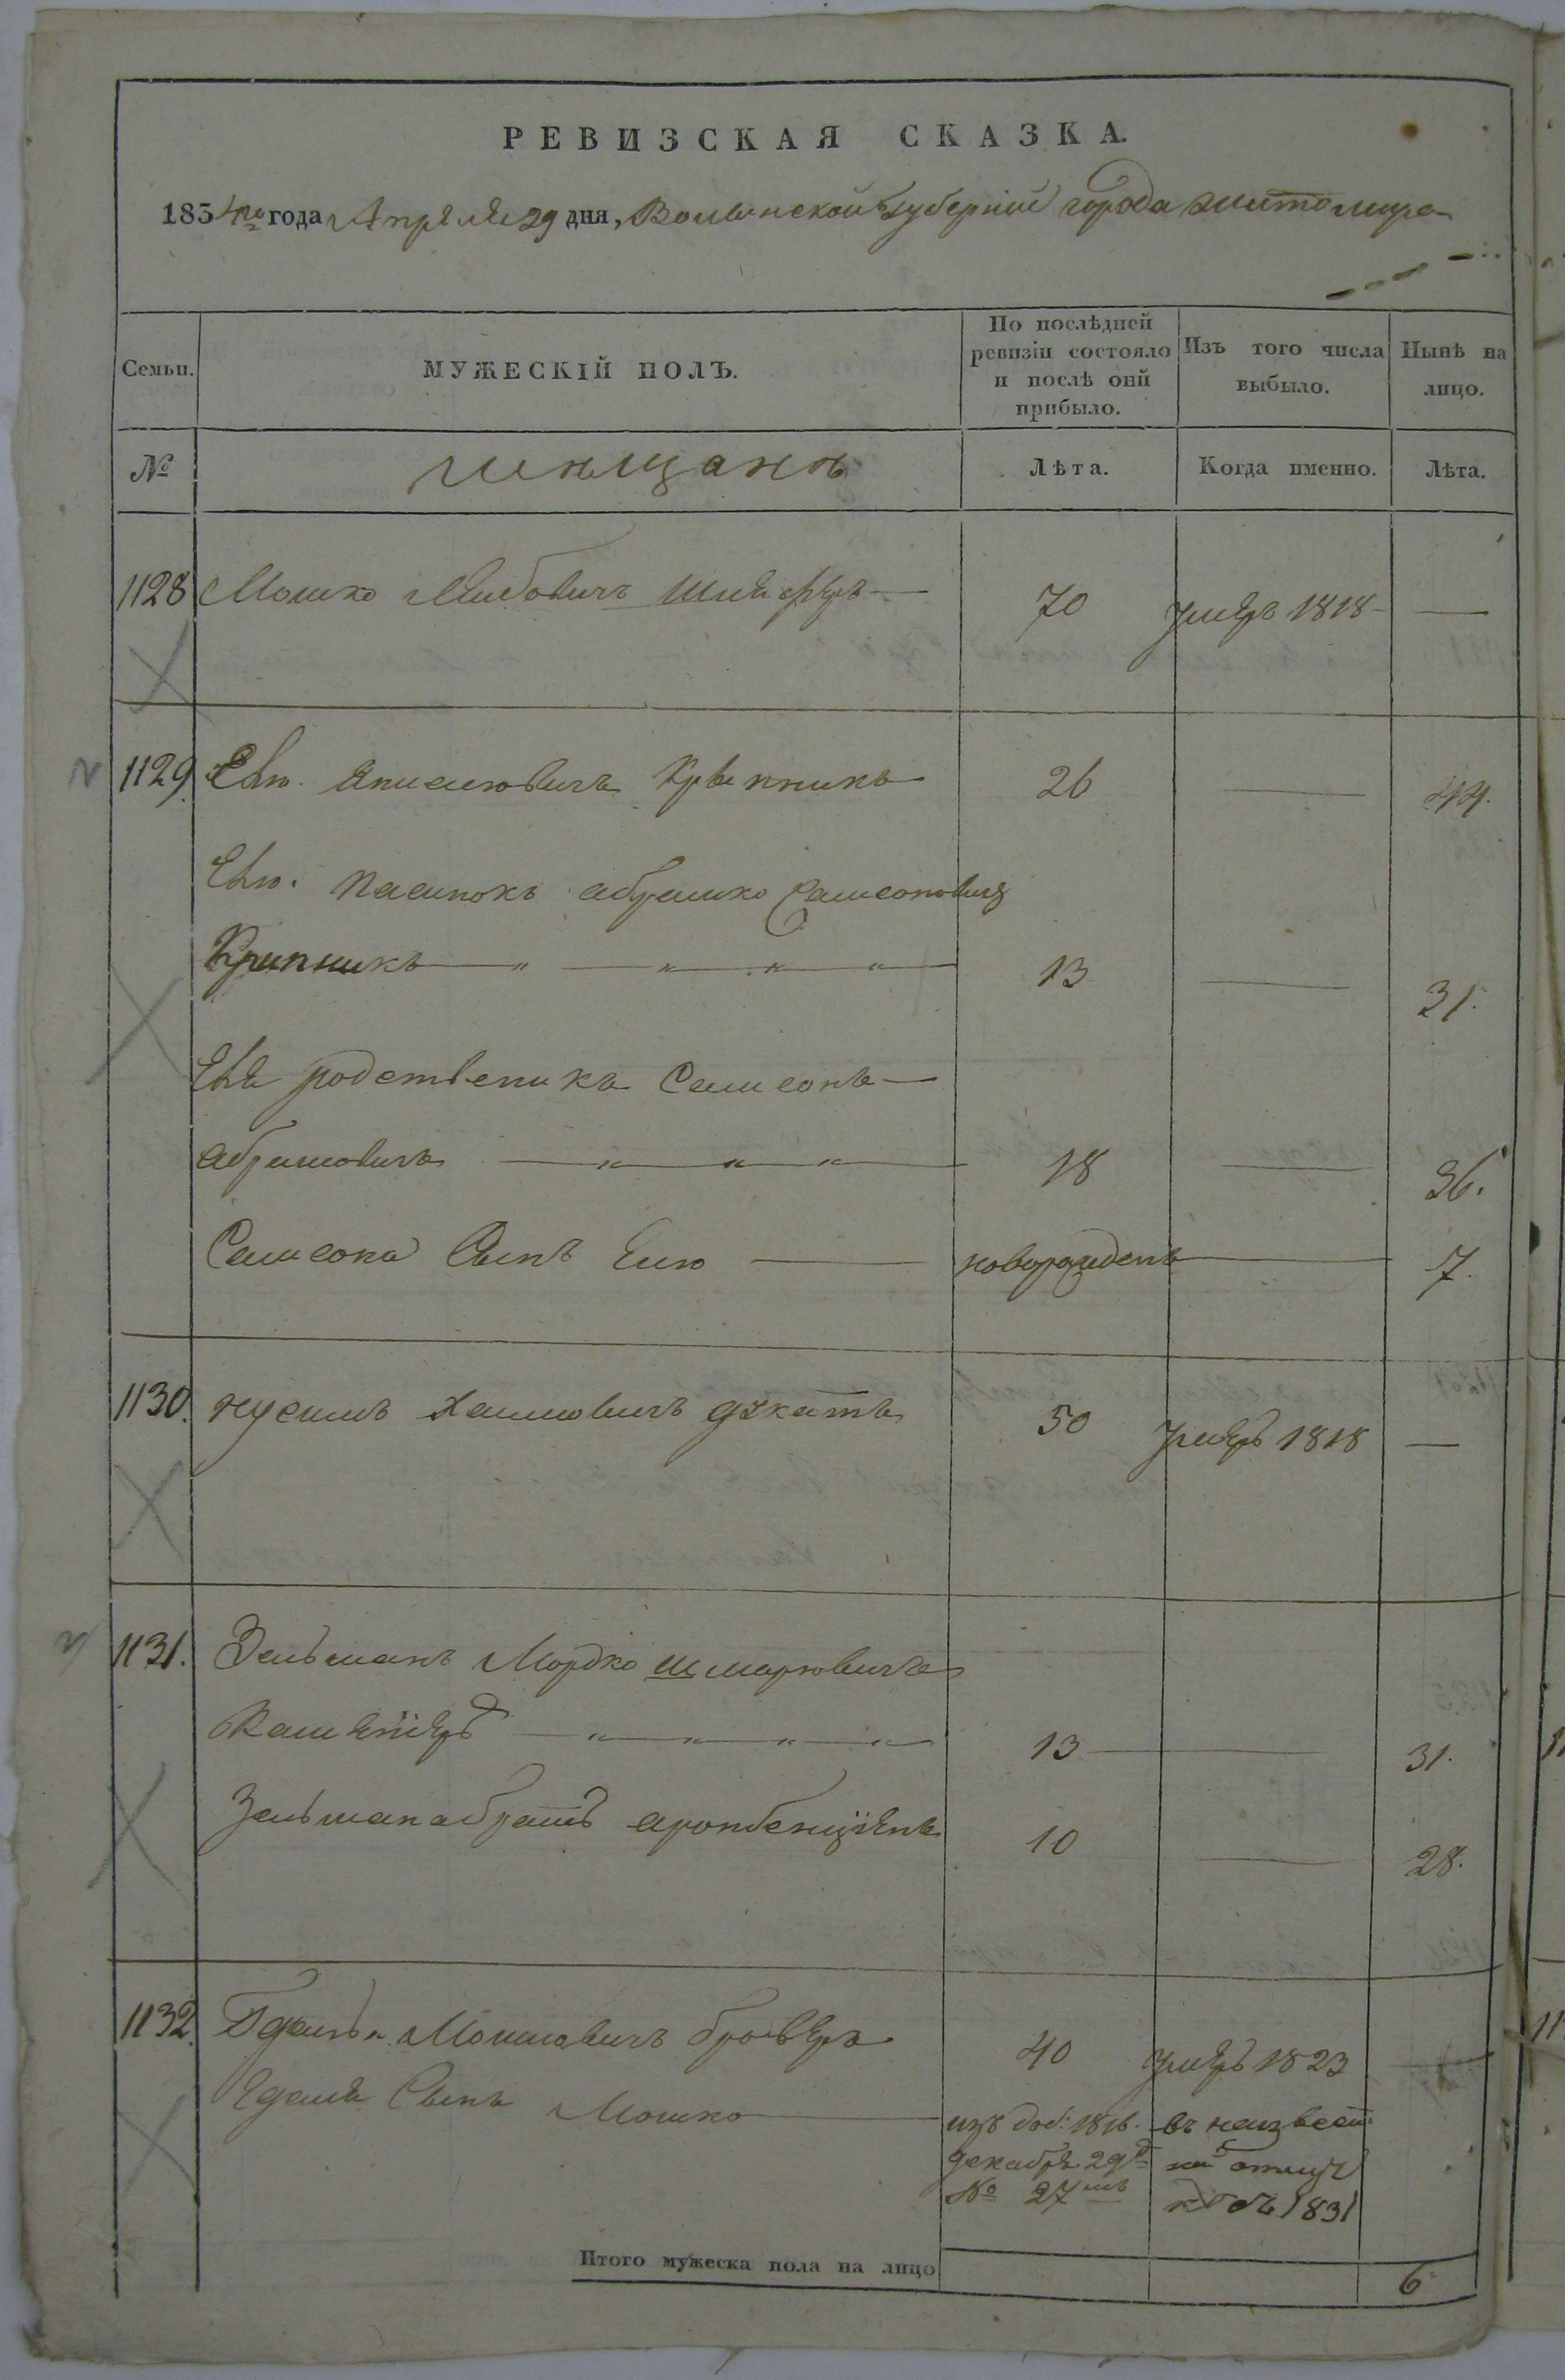 РЕВИЗСКАЯ СКАЗКА.
1834го года Апреля 29 дня, Волынской Губернии города житомира
Семьи. МУЖЕСКІЙ ПОЛЪ. По послѣдней ревизіи состояло и послѣ оий прибыло. Изъ того числа выбыло. Нынѣ на лицо.
№ мѣщанъ Лѣта. Когда именно. Лѣта.
1128 Мошко Лейбовичъ 70 умеръ 1818 —
1129. 26 — 44.
Его пасинокъ абрамко Самсоновичъ
Крипникъ 13 — 31.
Его родственикъ Самсонъ
абрамовичъ 18 — 36.
Самсона Сынъ новорожденъ — 7.
1130. нусимъ Хаимовичъ дукатъ 50 умеръ 1818 —
1131. Зельманъ Мордко шмарювичъ
13 — 31.
Зельмана братъ аронбенціенъ 10 — 28.
1132. Мошковичъ броверъ 40 умеръ 1823 —
Сынъ Мошко изъ доб: 1816. въ неизвест
декабря 29д
№ 27мъ 1831
Итого мужеска пола на лицо 6